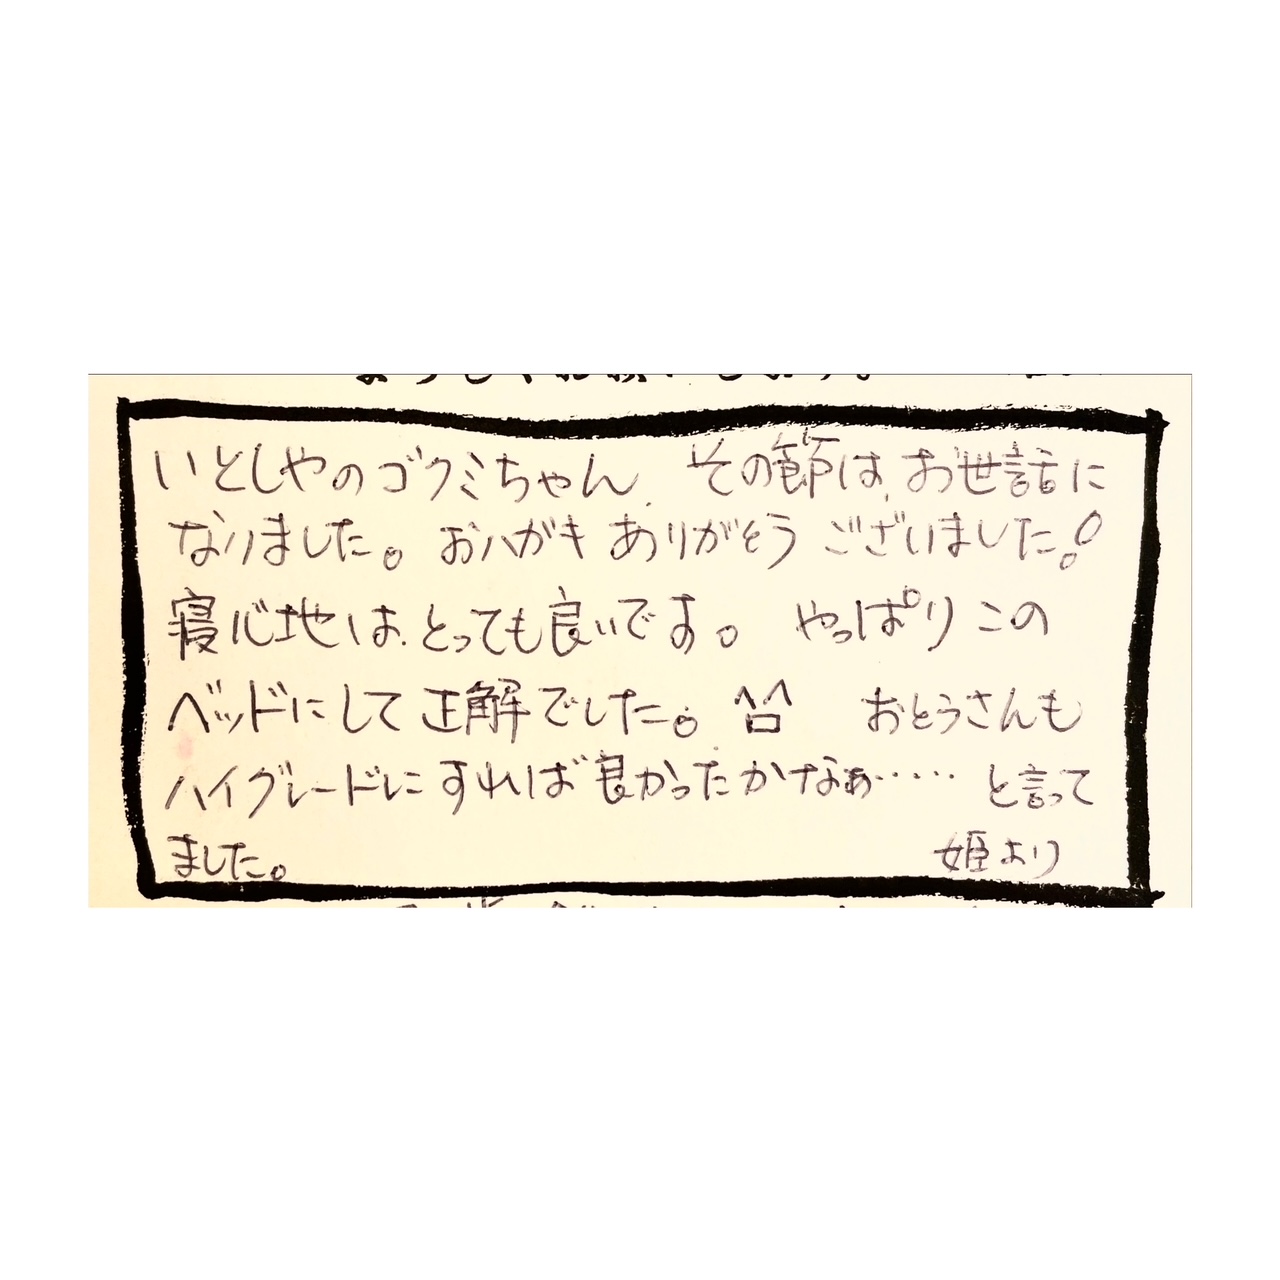 いとしやのゴクミちゃん、その節は、お世話に
なりました。おハガキありがとうございました!
寝心地は、とっても良いです。やっぱりこの
ベッドにして正解でした。^□^ おとうさんも
ハイグレードにすれば良かったかなぁ…… と言って
ました。 姫より